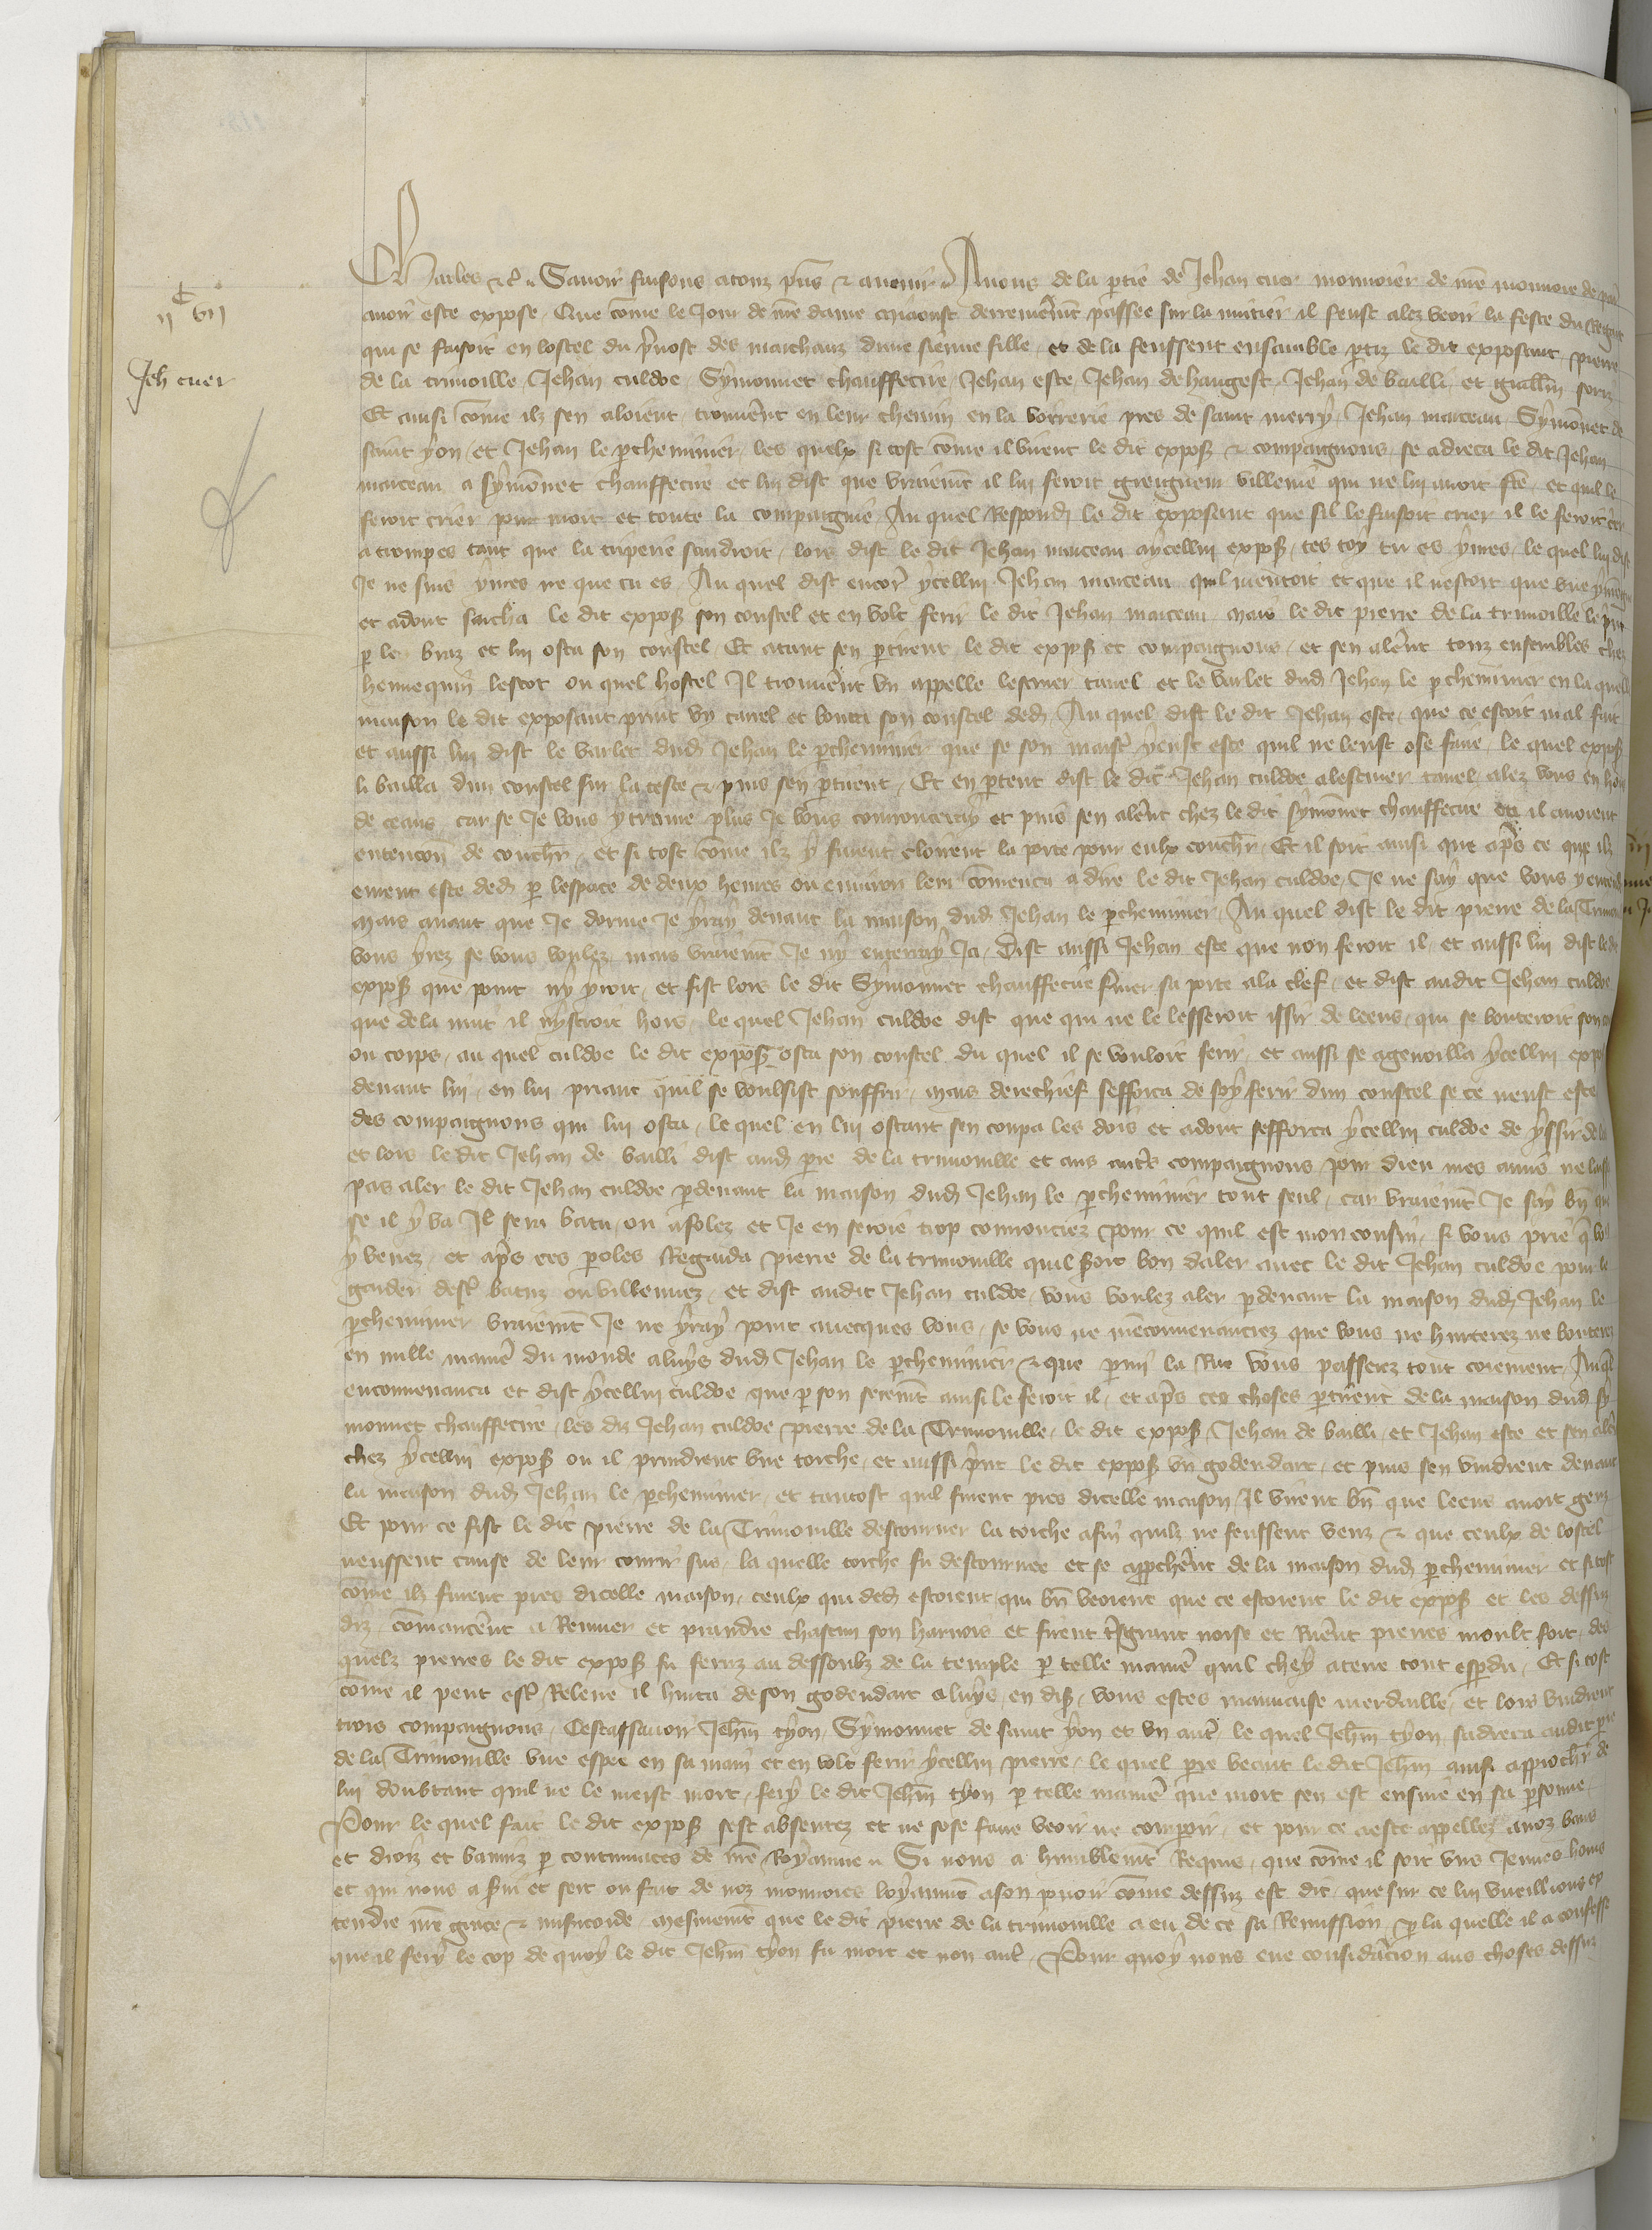 IIᶜ VII
Jeh cuer
Charles etc. Savoir faisons a touz pñs et avenir A nous de la ptie de Jehan cuer monnoier de nře monnoie de
avoir este expose Que cõme le Jour de nře dame miaoust derrenierem̃t passee sur la nuitier il feust alez veoir la feste du Reg
qui se faisoit en lostel du pvost des marchanz dune sienne fille et de la feussent ensamble ptiz le dit exposant pierre
de la trimoille Jehan culdoe Symonnet chauffecire Jehan este Jehan de hangest Jehan de bailli et
Et ainsi cõme ilz sen aloient trouverẽt en leur chemin en la voirrerie pres de saint merry Jehan marceau Symõnet de
saint yon et Jehan le pcheminier les quelx si tost cõme il virent le dit expos et compaignons se adreca le dit Jehan
marceau a symõnet chauffecire et lui dist que vraiem̃t il lui feroit greigneur villenie qui ne lui avoit fẽ et quil le
feroit crier pour mort et toute la compaignie Au quel Respond le dit exposant que sil le faisoit crier il le feroit
a trompes tant que la triperie faudroit lors dist le dit Jehan marceau a ycellui expos tes toy tu es yvres le quel lui dist
Je ne suis yvres ne que tu es Au quel dist encor ycellui Jehan marceau quil mentoit et que il nestoit que une
et adont sacha le dit expos son coustel et en volt ferir le dit Jehan marceau mais le dit pierre de la trimoille le prit
p le braz et lui osta son coustel Et atant sen ptirent le dit expos et compaignons et sen alerẽt touz ensembles chez
hennequin lescot ou quel hostel Il trouverẽt un appelle lescuier tavel et le varlet dud Jehan le pcheminier en la quelle
maison le dit exposant print un tavel et bouta son coustel ded Au quel dist le dit Jehan este que ce estoit mal fait
et aussi lui dist le varlet dud Jehan le pcheminier que se son maist y eust este quil ne leust ose faire le quel expos
li bailla dun coustel sur la teste et puis sen ptirent Et en ptent dist le dit Jehan culdoe a lescuier tavel alez vous en hors
de ceans car se Je vous y treuve plus Je vous courrouceray et puis sen alerẽt chez le dit symonet chauffecire ou il avoient
entencõn de couchr et si tost cõme ilz y furent clorrent la porte pour eulx couchr Et il soit ainsi que aps ce que ilz
eurent este ded p lespace de deux heures ou environ leur cõmenca a dire le dit Jehan culdoe Je ne say que vous y
mais avant que Je dorme Je yray devant la maison dud Jehan le pcheminier Au quel dist le dit pierre de la
vous yrez se vous voulez mais vraiem̃t Je ny enteray Ja Dist aussi Jehan este que non feroit il et aussi lui dist le dit
expos que point ny yroit et fist lors le dit Symonnet chauffecire fmer sa porte a la clef et dist audit Jehan culdoe
que de la nuit il nystroit hors le quel Jehan culdoe dist que qui ne le lesseroit issir de leens qui se bouteroit son
ou corps au quel culdoe le dit expos osta son coustel du quel il se vouloit ferir et aussi se agenoilla ycellui expos
devant lui en lui priant quil se voulsist souffrir mais derechief sefforca de soy ferir dun coustel se ce neust este
des compaignons qui lui osta le quel en lui ostant sen coupa les dois et adont sefforca ycellui culdoe de yssir de la
et lors le dit Jehan de bailli dist aud pre de la trimoulle et aus autꝯ compaignons pour dieu mes amis ne
pas aler le dit Jehan culdoe pdevant la maison dud Jehan le pcheminier tout seul car vraiem̃t Je say bñ que
se il y va Il sera batu ou afolez et Je en seroie trop courrouciez pour ce quil est mon cousin si vous prie q
y venez et aps ces poles Regarda pierre de la trimouille quil soit bon daler avec le dit Jehan culdoe pour le
garder dest batuz ou villennez et dist audit Jehan culdoe vous voulez aler pdevant la maison dud Jehan le
pcheminier vraiem̃t Je ne yray point avecques vous se vous ne mẽconvenanciez que vous ne hurterez ne bouterez
en nulle manie du monde a luys dud Jehan le pcheminier et que pmi la Rue vous passerez tout coiement
enconvenanca et dist ycellui culdoe que p son serem̃t ainsi le feroit il et aps ces choses ptirent de la maison dud sy
monnet chauffecire les diz Jehan culdoe pierre de la Trimouille le dit expos Jehan de bailli et Jehan este et sen
chez ycellui expos ou il prindrent une torche et aussi print le dit expos un godendart et puis sen vindrent devant
la maison dud Jehan le pcheminier et tantost quil furent pres dicelle maison Il virent bñ que leens avoit gens
Et pour ce fist le dit pierre de la Trimouille destourner la torche afin quilz ne feussent veuz et que ceulx de lostel
neussent cause de leur courir sus la quelle torche fu destournee et se approcherẽt de la maison dud pcheminier et si tost
cõme ilz furent pres dicelle maison ceulx qui ded estoient qui bñ veoient que ce estoient le dit expos et les dessus
diz cõmancerẽt a Remuer et prandre chascun son harnois et firent trsgrant noise et Ruerẽt pierres moult fort des
quelz pierres le dit expos fu feruz au dessoubz de la temple p telle manie quil chey a terre tout espdu Et si tost
cõme il peut est Releve il hurta de son godendart a luys en dis vous estes mauvaise merdaille et lors vindrent
trois compaignons Cestassavoir Jehm tyon Symonnet de saint yon et un aut le quel Jehm tyon sadreca audit pre
de la Trimouille une espee en sa main et en volt ferir ycellui pierre le quel pre veant le dit Jehm ainsi approchr de
lui doubtant quil ne le meist mort fery le dit Jehm tyon p telle manie que mort sen est ensuie en sa psonne
Pour le quel fait le dit expos sest absentez et ne sose faire veoir ne comparoir et pour ce a este appellez a noz bans
et droiz et banniz p contumaces de nre Royaume Si nous a humblem̃t Requis que cõme il soit uns Jeunes homs
et qui nous a svi et sert ou fait de noz monnoies loyaumẽt a son pouoir cõme dessuz est dit que sur ce lui vueillions ex
tendre nre grace et misicorde mesmem̃t que le dit pierre de la trimouille a eu de ce sa Remission p la quelle il a confesse
que il fery le cop de quoy le dit Jehm tyon fu mort et non aut Pour quoy nous eue considacion aus choses dessus